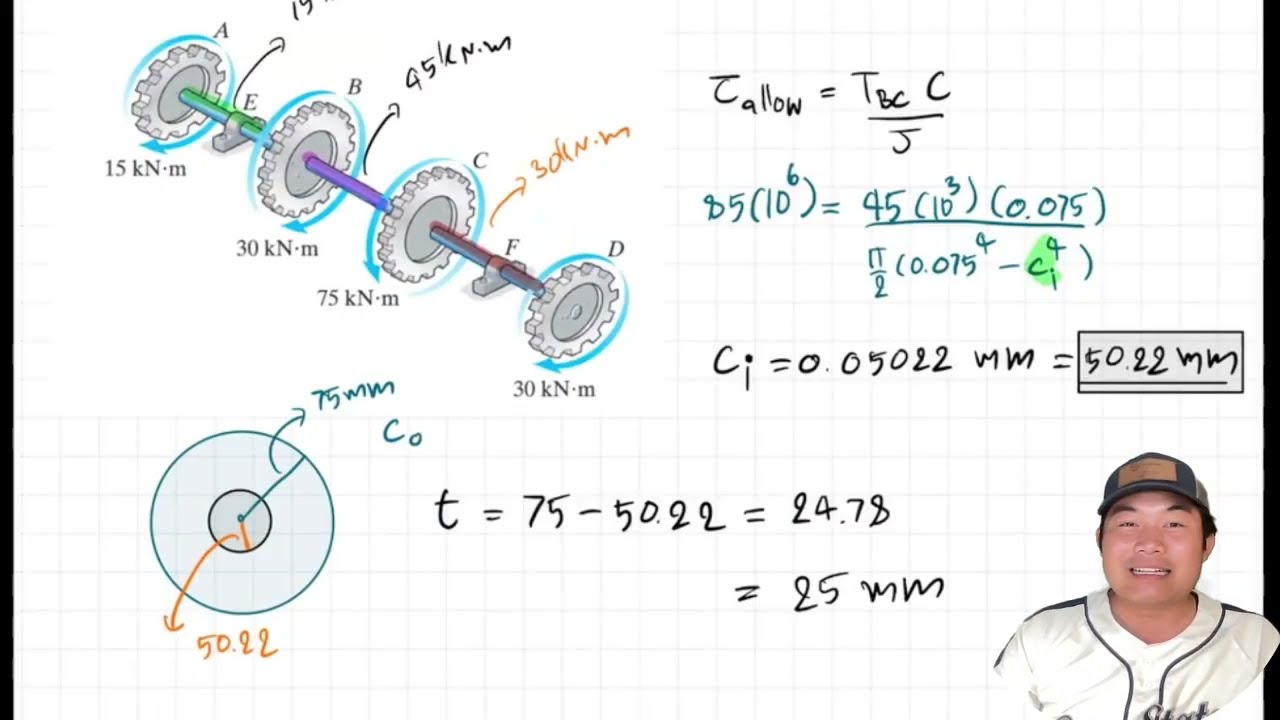 15
A
E
B
45kN.m
C
30kN.m
F
D
15 kN·m
30 kN·m
75 kN·m
30 kN·m
τallow = TBC C / J
85(10^6) = 45(10^3)(0.075) / π/2 (0.075^4 − ci^4)
Ci = 0.05022 mm = 50.22 mm
75mm
Co
t = 75 − 50.22 = 24.78
= 25 mm
50.22